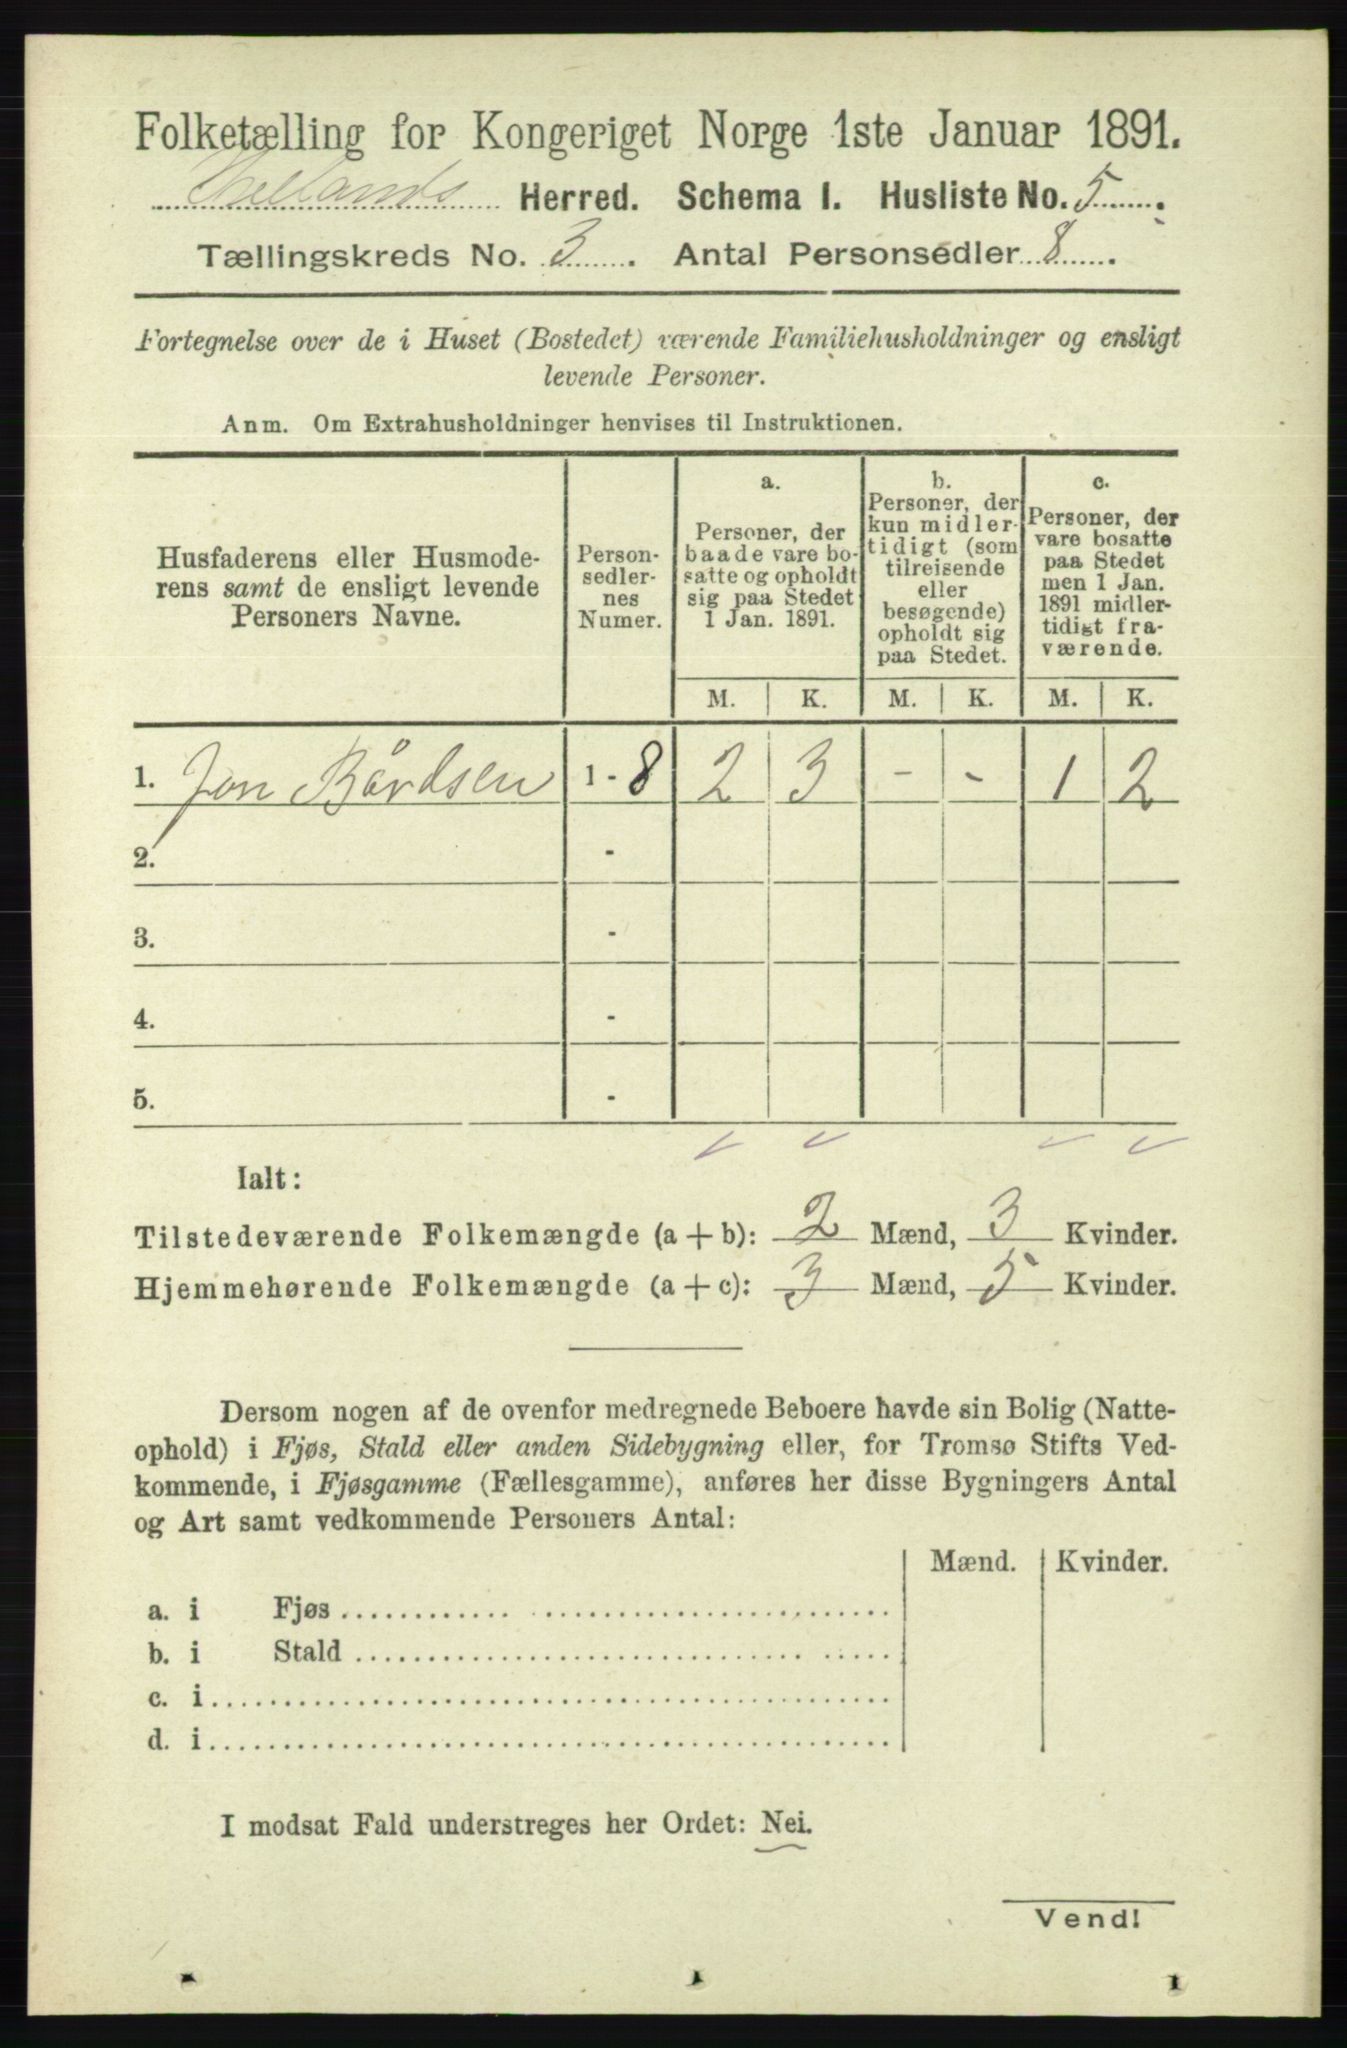 Folketælling for Kongeriget Norge 1ste Januar 1891.
Herred. Schema I. Husliste No. 5.
Tællingskreds No. 3. Antal Personsedler 8.
Fortegnelse over de i Huset (Bostedet) værende Familiehusholdninger og ensligt
levende Personer.
Anm. Om Extrahusholdninger henvises til Instruktionen.
Husfaderens eller Husmode-
rens samt de ensligt levende
Personers Navne.
Person-
sedler-
nes
Numer.
a.
Personer, der
baade vare bo-
satte og opholdt
sig paa Stedet
1 Jan. 1891.
b.
Personer, der
kun midler-
tidigt (som
tilreisende
eller
besøgende)
opholdt sig
paa Stedet.
c.
Personer, der
vare bosatte
paa Stedet
men 1 Jan.
1891 midler-
tidigt fra-
værende.
M. K. M. K. M. K.
1. Jon Bårdsen 1 - 8 2 3 - - 1 2
2. -
3. -
4. -
5. -
Ialt:
Tilstedeværende Folkemængde (a + b): 2 Mænd, 3 Kvinder.
Hjemmehørende Folkemængde (a + c): 3 Mænd, 5 Kvinder.
Dersom nogen af de ovenfor medregnede Beboere havde sin Bolig (Natte-
ophold) i Fjøs, Stald eller anden Sidebygning eller, for Tromsø Stifts Ved-
kommende, i Fjøsgamme (Fællesgamme), anføres her disse Bygningers Antal
og Art samt vedkommende Personers Antal:
Mænd. Kvinder.
a. i Fjøs
b. i Stald
c. i
d. i
I modsat Fald understreges her Ordet: Nei.
Vend!